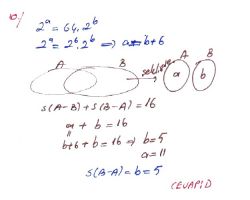 10/
2^a = 64.2^b
2^a = 2^6.2^b ⟹ a=b+6
A B A B
a b
s(A-B) + s(B-A) = 16
a + b = 16
b+6 + b = 16 ⟹ b=5
a=11
s(B-A) = b = 5
CEVAP:D